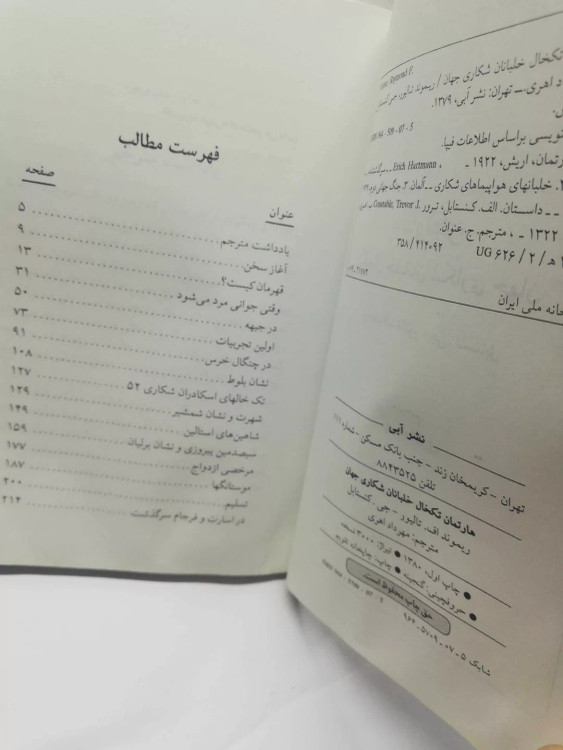 تکخال خلبانان شکاری جهان / ریموند
د اهری.ـ تهران: نشر آبی، ۱۳۷۹.
نویسی براساس اطلاعات فیپا.
ارتمان، اریش، ۱۹۲۲ - Erich Hartmann ,
۲. خلبانهای هواپیماهای شکاری ــ آلمان. ۳. جنگ جهانی دوم،
ــ داستان. الف. کنستابل، ترور Constable, Trevor J.
۱۳۲۲ - ، مترجم. ج. عنوان.
UG ۶۲۶ / ۲ / ه
۳۵۸ / ۴۱۴۰۹۲
خانه ملی ایران
نشر آبی
تهران - کریمخان زند - جنب بانک مسکن - شماره
تلفن ۸۸۴۳۵۲۵
هارتمان تکخال خلبانان شکاری جهان
ریموند اف. تالیور - جی. کنستابل
مترجم: مهرداد اهری
● چاپ اول، ۱۳۸۰ ● تیراژ: ۳۰۰۰ نسخه
● حروفچینی: گنجینه ● چاپ: چاپخانه
حق چاپ محفوظ است.
شابک ۵ - ۰۷ - ۵۷۰۹ - ۹۶۴
فهرست مطالب
عنوان صفحه
یادداشت مترجم ۵
آغاز سخن ۹
قهرمان کیست؟ ۱۳
وقتی جوانی مرد می‌شود ۳۱
در جبهه ۵۰
اولین تجربیات ۷۳
در چنگال خرس ۹۱
نشان بلوط ۱۰۸
تک خالهای اسکادران شکاری ۵۲ ۱۲۷
شهرت و نشان شمشیر ۱۲۹
شاهین‌های استالین ۱۴۹
سیصدمین پیروزی و نشان برلیان ۱۵۹
مرخصی ازدواج ۱۷۷
موستانگها ۱۸۷
تسلیم ۲۰۰
در اسارت و فرجام سرگذشت ۲۱۴